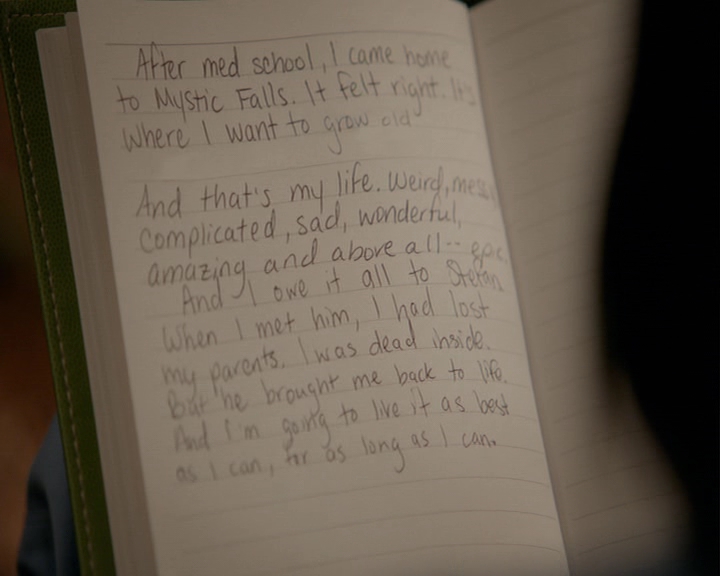 After med school, I came home
to Mystic Falls. It felt right. It's
Where I want to grow old
And that's my life. Weird, messy,
complicated, sad, wonderful,
amazing and above all-- epic.
And I owe it all to Stefan
When I met him, I had lost
my parents. I was dead inside.
But he brought me back to life.
And I'm going to live it as best
as I can, for as long as I can.